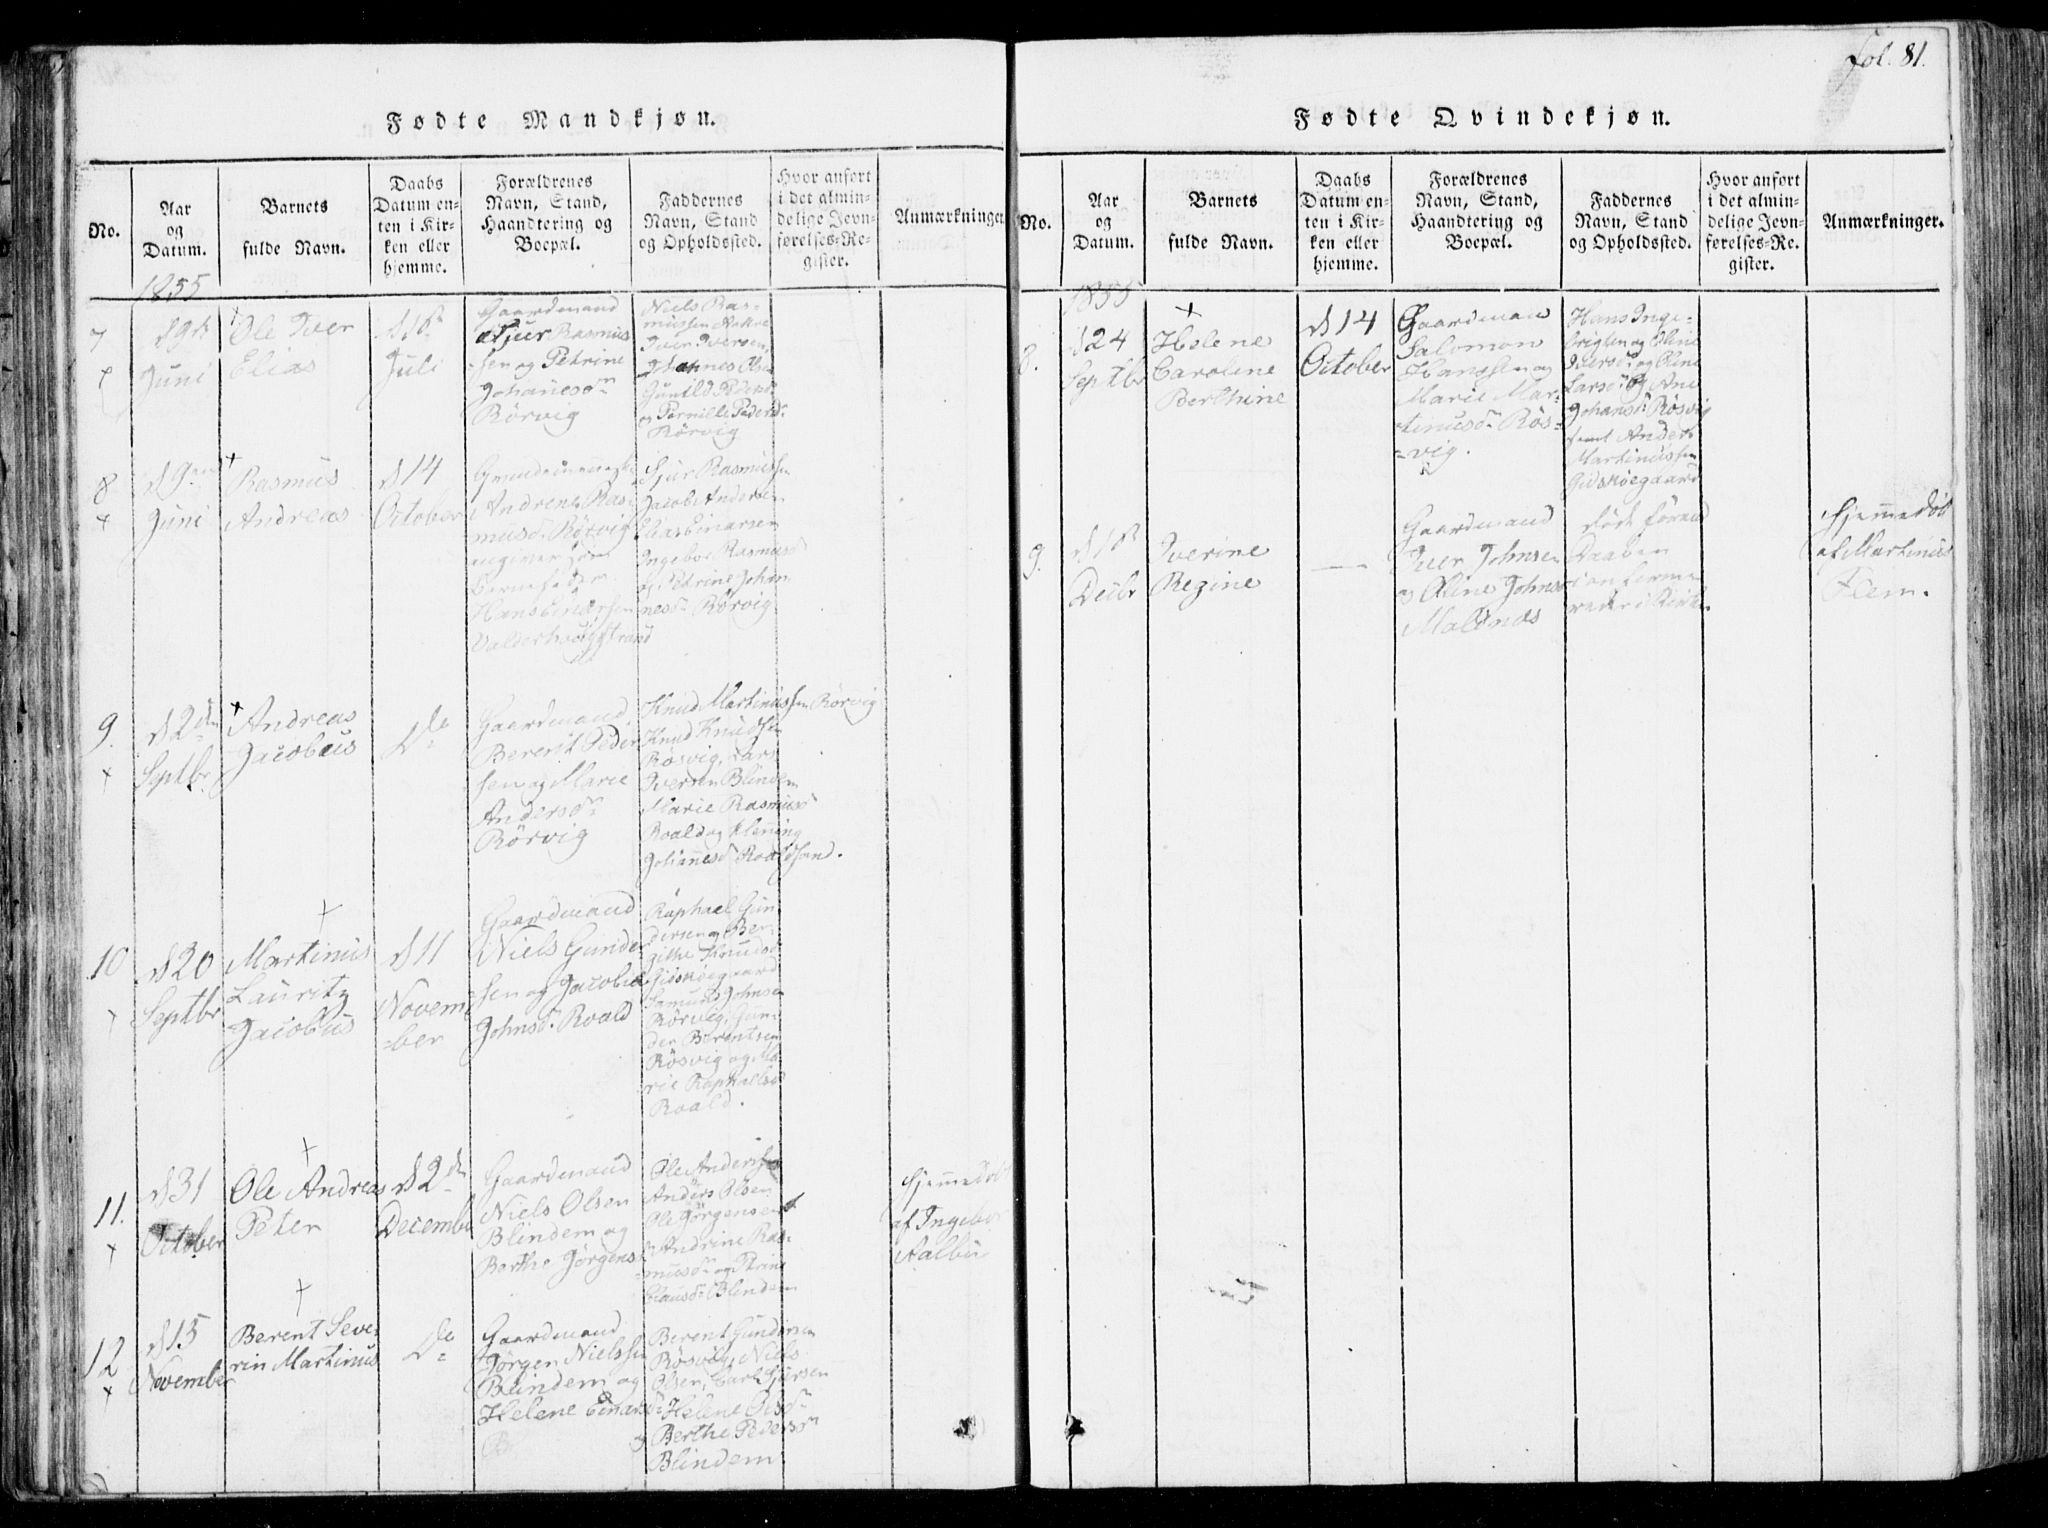 fol. 81.
Fødte Mandkjøn.
No.
Aar
og
Datum.
Barnets
fulde Navn.
Daabs
Datum en-
ten i Kir-
ken eller
hjemme.
Forældrenes
Navn, Stand,
Haandtering og
Boepæl.
Faddernes
Navn, Stand
og Opholdssted.
Hvor anført
i det almin-
delige Jevn-
førelses-Re-
gister.
Anmærkninger.
1855
7
Juni
Ole Iver
Elias
Juli
Gaardmand
Sjur Rasmus
sen og Petrine
Johannesdr
Rörvig
Niels Ras-
mussen
Iver Iversen,
Johannes Ols
Gunild
og Pernille Pedersdr
Rörvig
8
d 9
Juni
Rasmus
Andreas
d 14
October
Andrene Ras
musdr Rörvig
angiver som
Barnefader
Hans Einersen
Valderhougstrand
Sjur Rasmussen
Jacob Andersen
Elias Einarsen
Ingebor Rasmusd
og Petrine Johan
nesdr Rörvig
9.
d 2den
Septbr.
Andreas
Jacobus
Do
Gaardmand
Berent Peder
sen og Marie
Andersdr
Rörvig
Knud Martinussen Rörvig
Knud Knudsen
Rösvig, Lars
Iversen Blindem
Marie Rasmusd
Roald og
Johannesd Roaldsand.
10
d 20
Septbr
Martinus
Lauritz
Jacobus
d 11
Novem
=ber
Gaardmand
Niels Gunder
sen og Jacobie
Johnsdr. Roald
Raphael Gun
dersen og Ber
githe Knudsd
Gidskøegaard
Samund Johnsen
Rörvig, Gun-
der Berentsen
Rösvig og Ma
rie Raphaelsd
Roald.
11.
d 31
October
Ole Andreas
Peter
d 2den
December
Gaardmand
Niels Olsen
Blindem og
Berthe Jørgensd
Ole Andersen
Anders Olsen
Ole Jørgensen
Andrine Ras-
musdr og Trine
Clausdr Blindem
Hjemmedøbt
af Ingebor
Aalbu
12
d 15
November
Berent Seve-
rin Martinus
Do
Gaardmand
Jørgen Nielssen
Blindem og
Helene Einarsd
Berent Gundersen
Rösvig, Niels
Olsen, Carl Sjursen
Helene Olsdr
og Berthe Pedersdr
Blindem
Fødte Qvindekjøn.
No.
Aar
og
Datum.
Barnets
fulde Navn.
Daabs
Datum en-
ten i Kir-
ken eller
hjemme.
Forældrenes
Navn, Stand,
Haandtering og
Boepæl.
Faddernes
Navn, Stand
og Opholdssted.
Hvor anført
i det almin-
delige Jevn-
førelses-Re-
gister.
Anmærkninger.
1855
8.
d 24
Septbr
Helene
Caroline
Berthine
d 14
October
Gaardman
Salomon
Hanssen og
Marie Mar-
tinusdr Rös=
=vig.
Hans Inge-
brigtsen og Oline
Iversdr og Oline
Larsdr og Ane
Johansd Rösvig
samt Anders
Martinussen
Gidskøegaard
9.
d 18
Decbr
Iverine
Regine
Gaardmand
Iver Johnsen
og Oline Johnsd
Moldnæs
født
Daaben
i Kirke.
Hjemmedøbt
af Martinus
Flem.